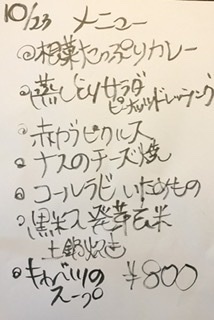 10/23 メニュー
◎根菜たっぷりカレー
◎蒸しどりサラダ
ピーナッツドレッシング
◎赤かぶピクルス
◎ナスのチーズ焼
◎コールラビいためもの
◎黒米入発芽玄米
土鍋炊き
◎キャベツの ¥800
スープ